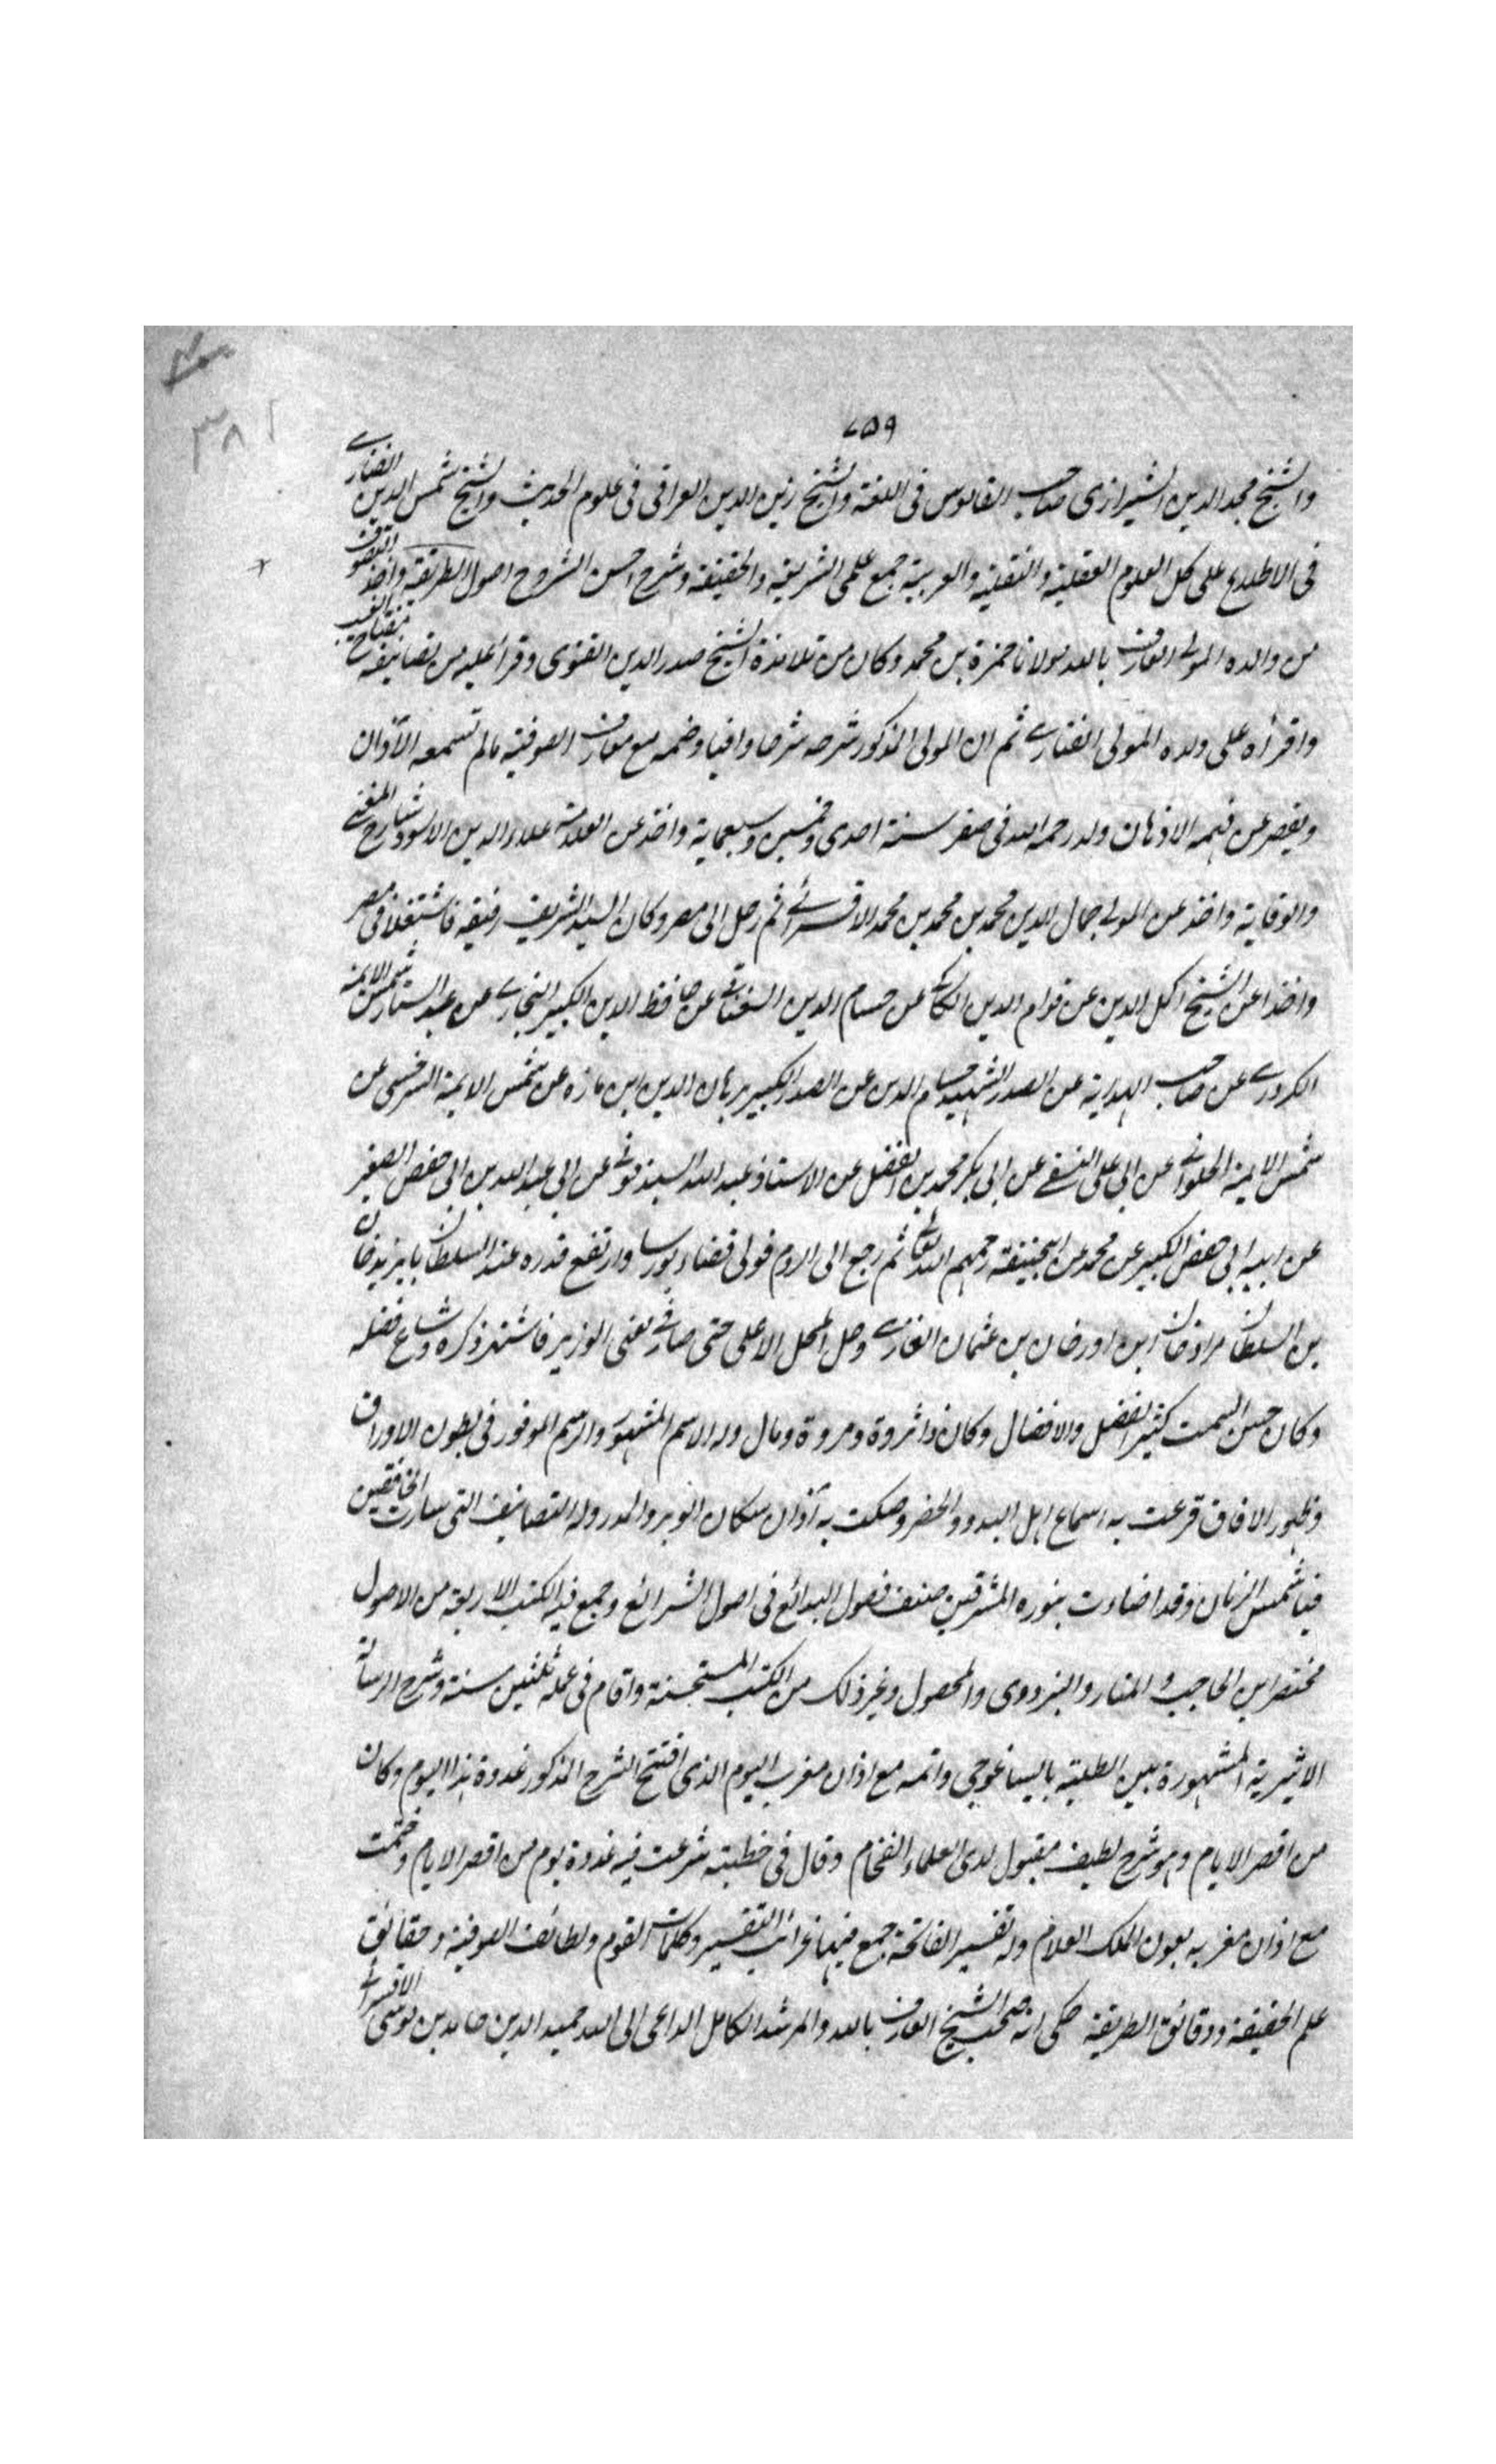 ٧٥٩
٣٨١
والشيخ مجد الدين الشيرازى صاحب القاموس فى اللغة والشيخ زين الدين العراقى فى علوم الحديث والشيخ شمس الدين الفنارے
فى الاطلاع على كل العلوم العقلية والنقلية والعربية جمع علمى الشريعة والحقيقة وشرح احسن الشروح اصول الطريقة واخذ التصوف
من والده المولے العارف بالله مولانا حمزة بن محمد وكان من تلامذة الشيخ صدر الدين القنوى وقرا عليه من تصانيفه مفتاح الغيب
واقرأه على ولده المولى الفنارے ثم ان المولى المذكور شرحه شرحا وافيا وضمه مع معارف الصوفية مالم تسمعه الآذان
ويقصر عن فهمه الاذهان ولد رحمه الله فى صفر سنة احدى وخمسين وسبعماية واخذ عن العلامة علاء الدين الاسود شارح المغنے
والوقاية واخذ عن المولے جمال الدين محمد بن محمد بن محمد الاقسرائے ثم رحل الى مصر وكان السيد الشريف رفيقه فاشتغلا فى مصر
واخذا عن الشيخ اكمل الدين عن قوام الدين الكاكے عن حسام الدين السغناقے عن حافظ الدين الكبير البخارے عن عبد الستار شمس الايمة
الكردرے عن صاحب الهداية عن الصدر الشهيد حسام الدين عن الصدر الكبير برهان الدين ابن مازه عن شمس الايمة السرخسى عن
شمس الايمة الحلوائے عن ابى على النسفے عن ابى بكر محمد بن الفضل عن الاستاذ عبد الله السبذمونے عن ابى عبد الله بن ابى حفص الصغير
عن ابيه ابى حفص الكبير عن محمد عن ابيحنيفة رحمهم الله تعالے ثم رجع الى الروم فولى قضاء بورسا وارتفع قدره عند السلطان بايزيد خان
بن السلطان مراد خان ابن اورخان بن عثمان الغازے وحل المحل الاعلى حتى صار فے معنى الوزير فاشتهر ذكره وشاع فضله
وكان حسن السمت كثير الفضل والافضال وكان ذا ثروة ومروة ومال وله الاسم المشهور والرسم الموفور فى بطون الاوراق
وظهور الافاق قرعت به اسماع اهل البدو والحضر وصكت به آذان سكان الوبر والمدر وله التصانيف التى سارت الخافقين
فيا شمس الزمان وقد اضاءت بنوره المشرقين صنف فصول البدائع فى اصول الشرائع وجمع فيه الكتب الاربعة من الاصول
مختصر ابن الحاجب والمنار والبزدوى والمحصول وغير ذلك من الكتب المستحسنة واقام فى عمله ثلثين سنة وشرح الرسالة
الاثيرية المشهورة بين الطلبة بايساغوجى واتمه مع اذان مغرب اليوم الذى افتتح الشرح المذكور غدوة هذا اليوم وكان
من اقصر الايام وهو شرح لطيف مقبول لدى العلماء الفخام وقال فى خطبته شرعت فيه غدوة يوم من اقصر الايام وختمت
مع اذان مغربه بعون الملك العلام وله تفسير الفاتحة جمع فيها غرائب التفسير وكلمات القوم ولطائف الصوفية وحقائق
علم الحقيقة ودقائق الطريقة حكى انه صحب الشيخ العارف بالله والمرشد الكامل الداعى الى الله حميد الدين حامد بن موسى الاقسرائے